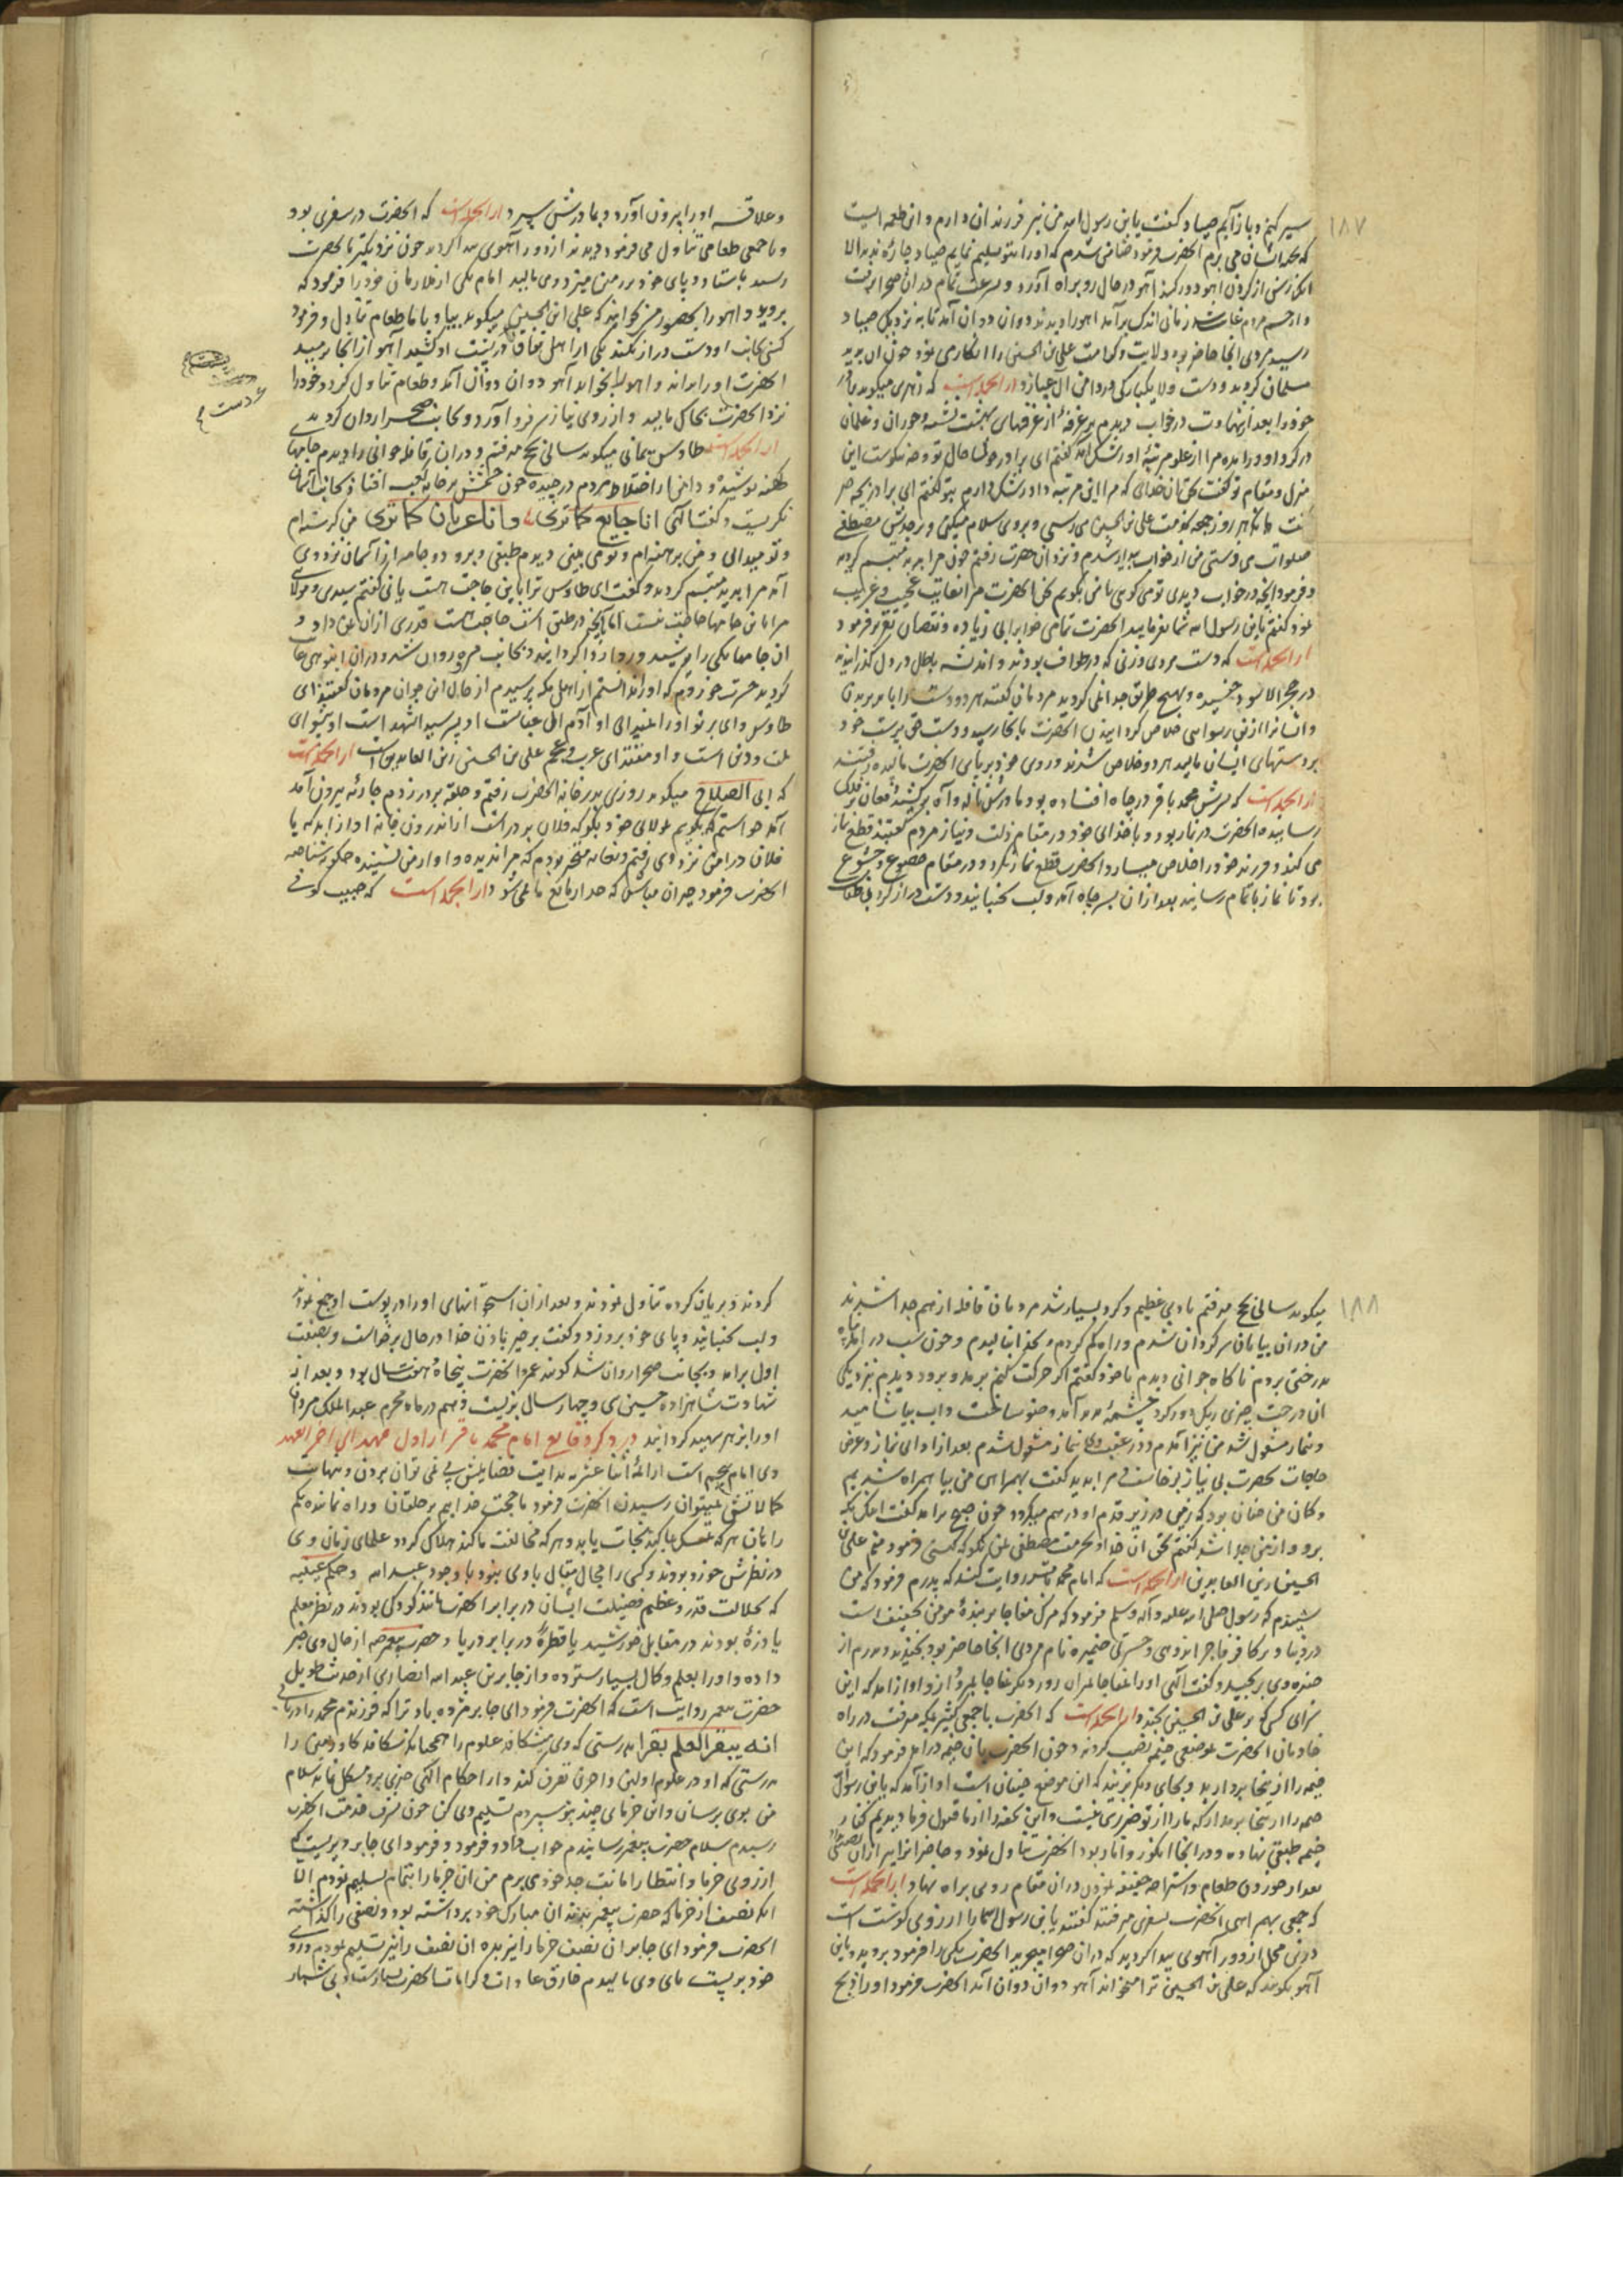 ۱۸۷
سیر کنم و باز آیم صیاد گفت یا بن رسول الله من نیز فرزندان دارم و این طعمه ایست
که بجهة ایشان می برم آنحضرت فرمود ضامن شدم که او را بتو تسلیم نمایم صیاد چاره ندید الا
آنکه رسن از گردن آهو دور کرد آهو در حال رو براه آورد و بسرعت تمام در آن صحرا برفت
و از چشم مردم غایب شد زمانی اندک برآمد آهو را دیدند دوان دوان آمد تا به نزدیک صیاد
رسید مردی آنجا حاضر بود ولایت و کرامت علی بن الحسین را انکاری بود چون آن بدید
مسلمان گردید و دست ولا بیکبارگی در دامن آل عبا زد از آنجمله است که زهری میگوید برادر
خود را بعد از شهادت در خواب دیدم بر غرفهٔ از غرفهای بهشت نشسته و حوران و غلمان
در گرد او در آمده مرا از علو مرتبهٔ او رشک آمد گفتم ای برادر خوشا حال تو و چه نیکوست این
منزل و مقام تو گفت بحق آن خدای که مرا این مرتبه داد رشک دارم بتو گفتم ای برادر بچه چیز
گفت بآنکه هر روز جمعه بخدمت علی بن الحسین می رسی و بروی سلام میکنی و بر جدش مصطفی
صلوات می فرستی من از خواب بیدار شدم و نزد آن حضرت رفتم چون مرا بدید متبسم گردید
و فرمود آنچه در خواب دیدی تو می گویی یا من بگویم سخن آنحضرت مرا بغایت عجیب و غریب
نمود گفتم یا بن رسول الله شما بفرمایید آنحضرت تمامی خواب را بی زیاده و نقصان تقریر فرمود
از آنجمله است که دست مردی و زنی که در طواف بودند و اندیشه باطل در دل گذرانیده
در حجر الاسود چفسیده و بهیچ طریق جدا نمی گردید مردمان گفتند هر دو دست را باید برید تا
و ایشانرا ازین رسوایی خلاص گردانید آن آنحضرت بآنجا رسید و دست حق پرست خود
بر دستهای ایشان مالید هر دو خلاص شدند و روی خود بر پای آنحضرت مالیده رفتند
از آنجمله است که پسرش محمد باقر در چاه افتاده بود مادرش ناله و آه برکشیده فغان بر فلک
رسانیده آنحضرت در نماز بود و با خدای خود در مقام ذلت و نیاز مردم گفتند قطع نماز
می کند و فرزند خود را خلاص میسازد آنحضرت قطع نماز نکرد و در مقام خضوع و خشوع
بود تا نماز باتمام رسانید بعد از آن بسر چاه آمد و لب بجنبانید و دست دراز کرد بی طناب
و علاقه او را بیرون آورد و بمادرش سپرد از آنجمله است که آنحضرت در سفری بود
و با جمعی طعامی تناول می فرمود دیدند از دور آهوی پیدا گردید چون نزدیکتر بآنحضرت
رسید بایستاد و پای خود بر زمین میزد و می نالید امام یکی از ملازمان خود را فرمود که
بروید و آهو را بحضور من بخوانید که علی ابن الحسین میگوید بیا و با ما طعام تناول و فرمود
کسی بجانب او دست دراز نکند یکی از اهل نفاق در پشت او کشید آهو از آنجا برمید
آنحضرت او را براند و آهو را بخواند آهو دوان دوان آمد و طعام تناول کرد و خود را
نزد آنحضرت بخاک مالید و از روی نیاز سر فرو آورد و بجانب صحرا روان گردید
از آنجمله است طاوس یمانی میگوید سالی بحج میرفتم و در آن قافله جوانی را دیدم جامهای
کهنه پوشیده و دامن از اختلاط مردم درچیده چون چشمش بر خانه کعبه افتاد بجانب آسمان
نگریست و گفت الهی انا جایع کما تری و انا عریان کما تری من گرسنه ام
و تو میدانی و من برهنه ام و تو می بینی دیدم طبقی و برو دو جامه از آسمان نزد وی
آمد مرا بدید تبسم گردید و گفت ای طاوس ترا باین حاجت هست یا نی گفتم سیدی و مولای
مرا باین جامها حاجت نیست اما بآنچه در طبق است حاجت هست قدری از آن بمن داد و
آن جامها یکی را پوشید و دیگر را ردا گردانید و بجانب مروه روان شد و در آن انبوهی غایب
گردید حسرت خوردم که او را ندانستم از اهل مکه پرسیدم از حال این جوان مردمان گفتند ای
طاوس وای بر تو او را نمیدانی او آدم آل عباست او پسر سید الشهداست او پیشوای
ملت و دین است و او مقتدای عرب و عجم علی بن الحسین زین العابدین است از آنجمله است
که ابی الصلاح میگوید روزی بدر خانه آنحضرت رفتم و حلقه بر در زدم جاریه بیرون آمد
آمد خواستم که بگویم بمولای خود بگو که فلان بر در است از اندرون خانه آواز آمد که یا
فلان درآ من نزد وی رفتم و بغایت متحیر بودم که مرا ندیده و آواز من نشنیده چگونه شناخت
آنحضرت فرمود حیران مباش که جدار مانع ما نمی شود از آنجمله است که حبیب کوفی
دست
۱۸۸
میگوید سالی بحج میرفتم بادی عظیم و گرد بسیار شد مردمان قافله از هم جدا شدند
من در آن بیابان سرگردان شدم و راه گم کردم و بخدا بنالیدم و چون شب در آمد پناه
بدرختی بردم ناگاه جوانی دیدم با خود گفتم اگر حرکت کنم برمد و برود دیدم نزدیک
آن درخت چیزی ریگ دور کرد چشمهٔ پدید آمد وضو ساخت و آب بیاشامید
و بنماز مشغول شد من نیز آمدم و در عقب وی بنماز مشغول شدم بعد از ادای نماز و عرض
حاجات بحضرت بی نیاز برخاست مرا بدید گفت بهمراهی من بیا همراه شدیم
و گمان من چنان بود که زمین در زیر قدم او درهم میگردد چون صبح برآمد گفت اینک مکه
برو و از من جدا شد گفتم بحق آن خدا و بحرمت مصطفی بمن بگو که کیستی فرمود منم علی بن
الحسین زین العابدین از آنجمله است که امام محمد باقر روایت کند که پدرم فرمود که من
شنیدم که رسول صلی الله علیه و آله وسلم فرمود که مرگ مفاجا بر بندهٔ مؤمن تخفیف است
در دنیا و بر کافر فاجر اندوهی و حسرتی ضمیره نام مردی آنجا حاضر بود بخندید و پدرم از
خنده وی برنجید و گفت الهی او را بمفاجا بمیران روز دیگر بمفاجا بمرد و از و آواز آمد که این
سزای کسی که بر علی بن الحسین بخندد از آنجمله است که آنحضرت با جمعی کثیر بمکه میرفت در راه
خادمان آنحضرت بموضعی خیمه نصب کردند و چون آنحضرت بآن خیمه در آمد فرمود که این
خیمه را از اینجا بردارید و بجای دیگر بزنید که این موضع جنیان است آواز آمد که یا بن رسول
خیمه را از اینجا برمدار که ما را از تو ضرری نیست و این تحفه را از ما قبول فرما دیدیم کنار
خیمه طبقی نهاده و در آنجا انگور و انار بود آنحضرت تناول نمود و حاضرانرا نیز از آن بخشش
بعد از خوردن طعام و استراحه خفیفه نمودن در آن مقام روی براه نهاد از آنجمله است
که جمعی بهمراهی آنحضرت بسفری میرفتند گفتند یا بن رسول الله ما را آرزوی گوشت است
درین محل از دور آهوی پیدا گردید که در آن صحرا میچرید آنحضرت یکی را فرمود برو و باین
آهو بگوید که علی بن الحسین ترا میخواند آهو دوان دوان آمد آنحضرت فرمود او را ذبح
کردند و بریان کرده تناول نمودند و بعد از آن استخوانهای او را در پوست او جمع نمودند
و لب بجنبانید و پای خود برو زد و گفت برخیز باذن خدا در حال برخاست و بصفت
اول برآمد و بجانب صحرا روان شد گویند عمر آنحضرت پنجاه و هفت سال بود و بعد از
شهادت شاهزاده حسین سی و چهار سال بزیست و هم در ماه محرم عبدالملک مروان
او را بزهر شهید گردانید در ذکر وقایع امام محمد باقر از اول مهد الی آخر العهد
وی امام پنجم است از ائمهٔ اثنا عشر به بدایت فضایلش پی نمی توان بردن و بنهایت
کمالاتش نمیتوان رسیدن آنحضرت فرمود ما حجت خداییم بر خلقان و راه نماینده ایم
را بآن هر که تمسک بما کند نجات یابد و هر که مخالفت ما کند هلاک گردد علمای زمان وی
در نظرش خورد بودند و کسی را مجال مقال با وی نبود با وجود عبدالله و حکم عتیبه
که بجلالت قدر و عظم فضیلت ایشان در برابر آنحضرت مانند کودکی بودند در نظر معلم
یا ذرهٔ بودند در مقابل خورشید یا قطرهٔ در برابر دریا و حضرت پیغمبر از حال وی خبر
داده و او را بعلم و کمال بسیار ستوده و از جابر بن عبدالله انصاری از حدیث طویل
حضرت پیغمبر روایت است که آنحضرت فرمود ای جابر مژده باد ترا که فرزندم محمد را دریابی
انه یبقر العلم بقرا بدرستی که وی شکافد علوم را همچنانکه شکافد گاو زمین را
بدرستی که او در علوم اولین و آخرین تصرف کند و از احکام الهی چیزی برو مشکل نماند سلام
من بوی برسان و این خرمای چند بتو سپردم تسلیم وی کن چون بشرف خدمت آنحضرت
رسیدم سلام حضرت پیغمبر رسانیدم جواب داد و فرمود و فرمود ای جابر دیریست که
آرزوی خرما و انتظار امانت جد خود می برم من آن خرما را بتمام تسلیم نمودم الا
آنکه نصف از خرما که حضرت پیغمبر بدندان مبارک خود برداشته بود و نصفی را گذاشته
آنحضرت فرمود ای جابر آن نصف خرما را نیز بده آن نصف را نیز تسلیم نمودم و روی
خود بر پشت پای وی مالیدم خارق عادات و کرامات آنحضرت بسیارست و بی شمار